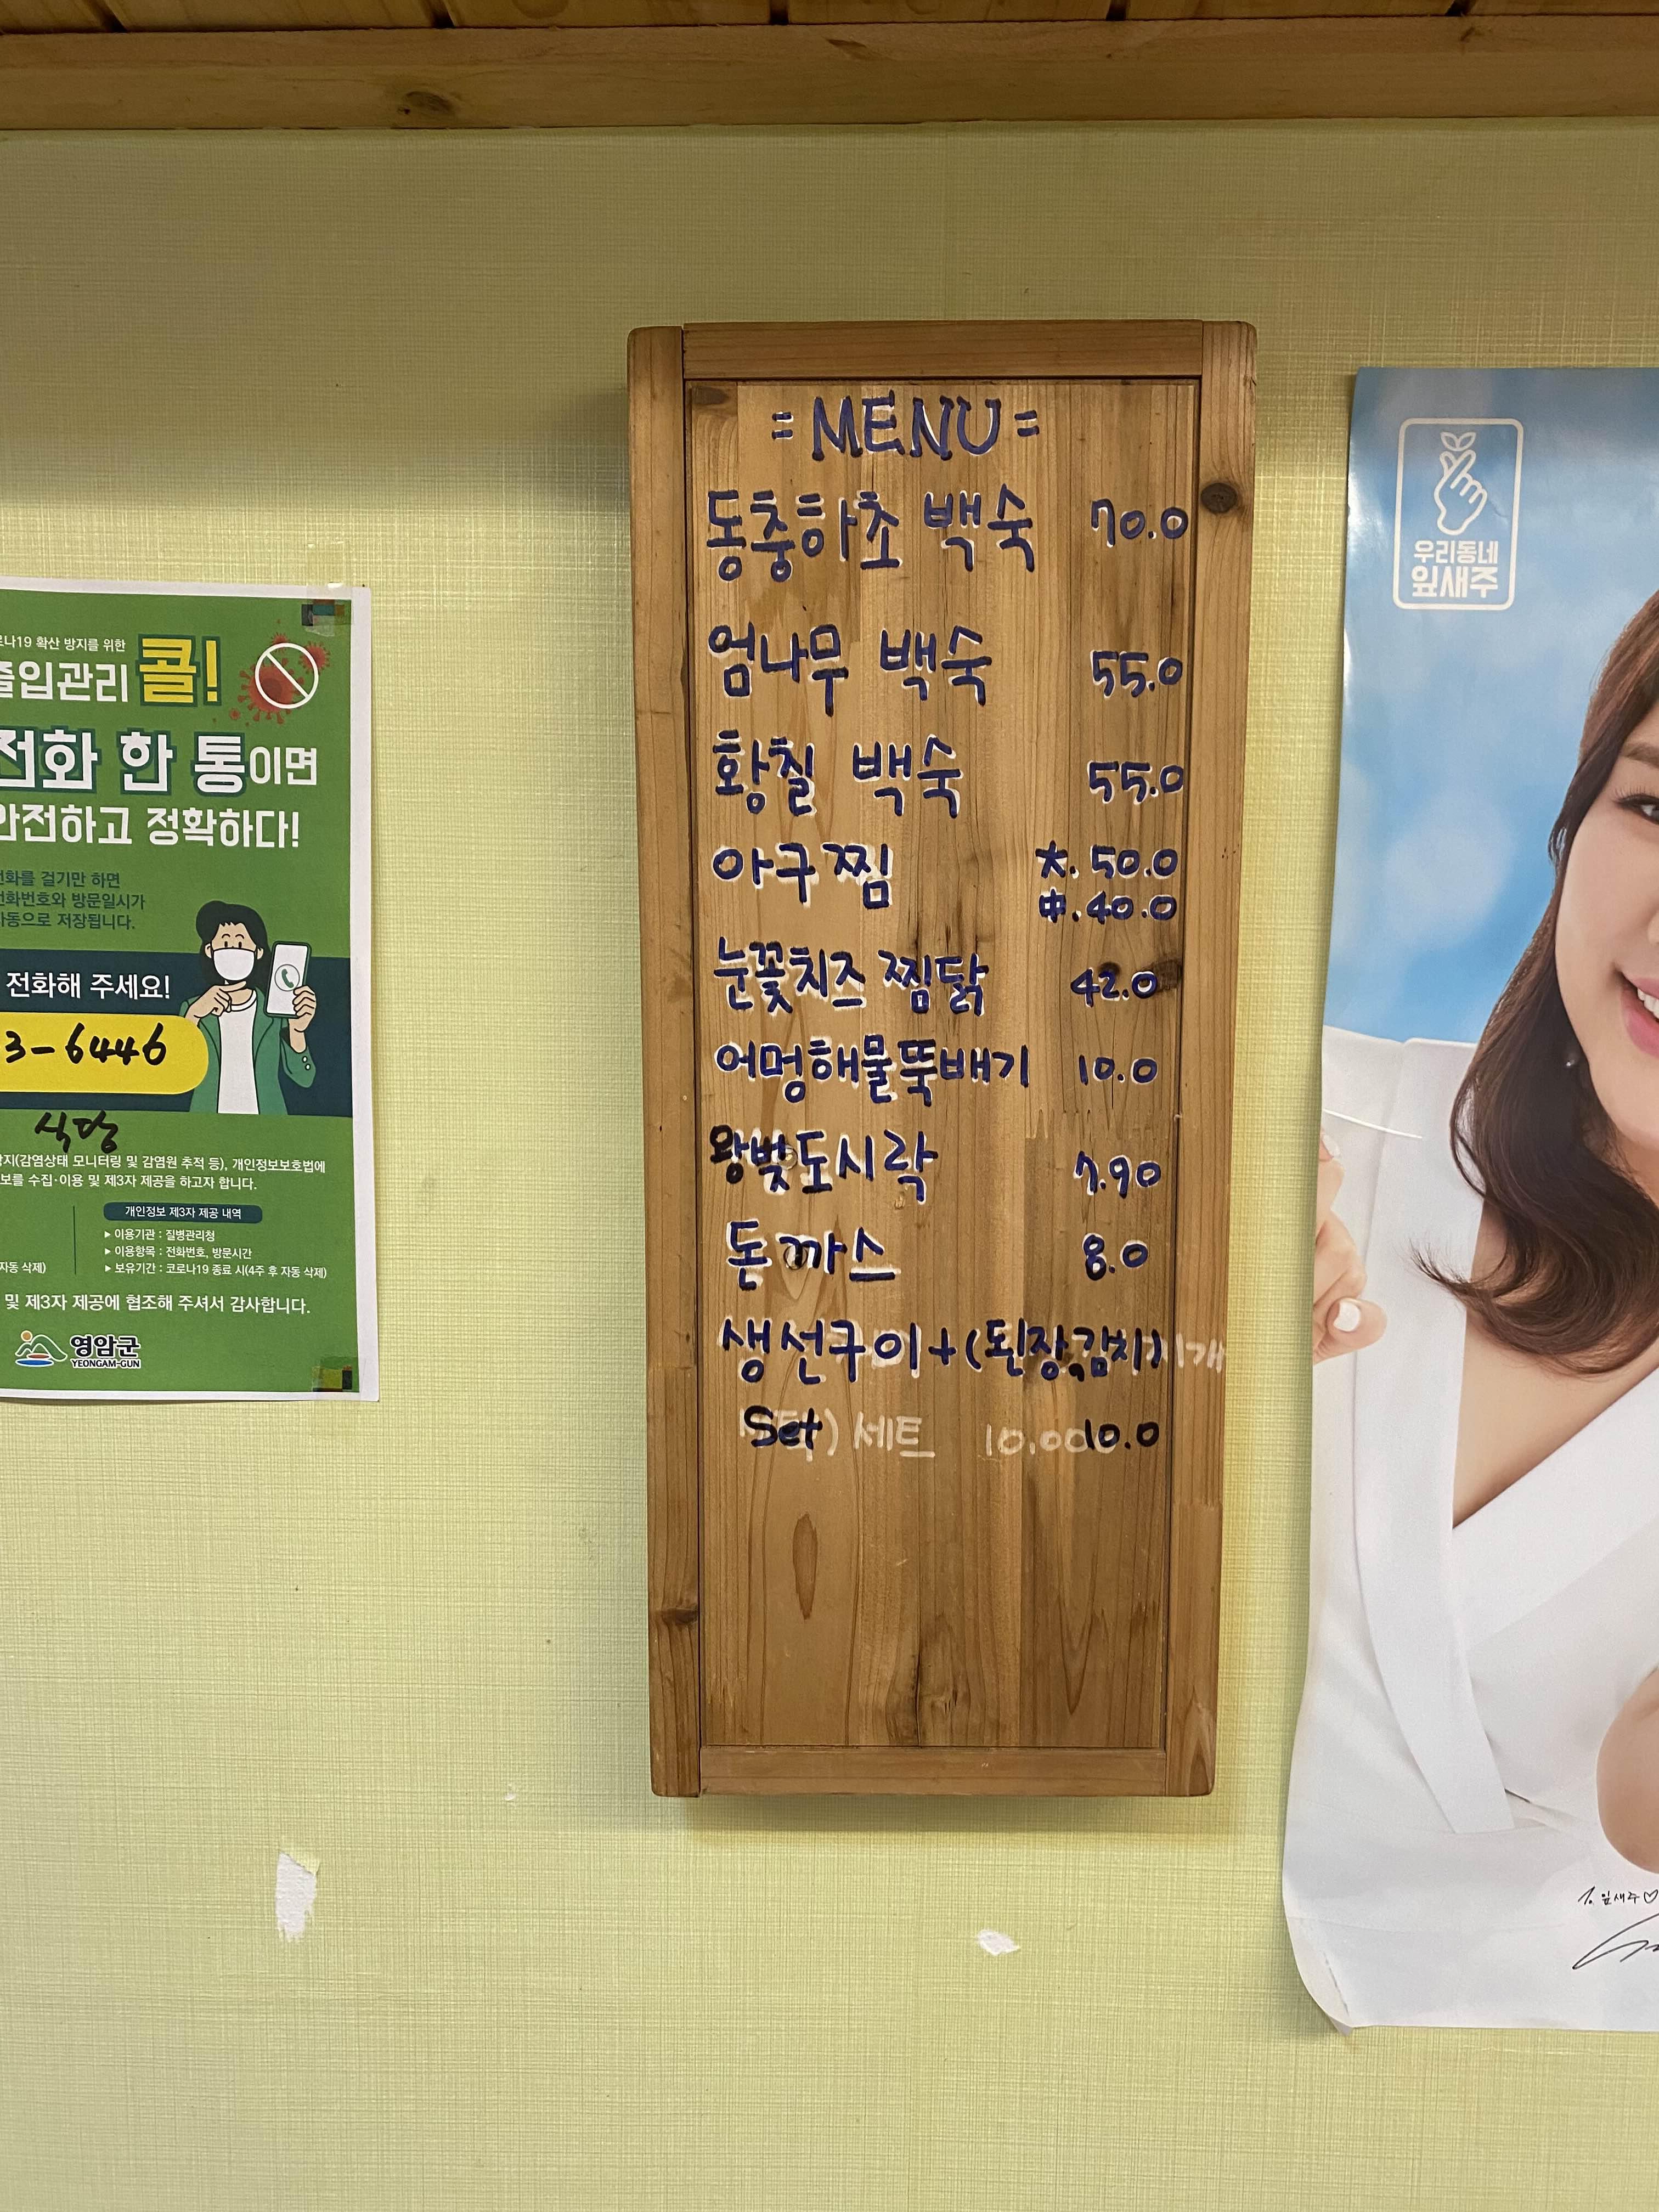 로나19 확산 방지를 위한
출입관리 콜!
전화 한 통이면
안전하고 정확하다!
전화를 걸기만 하면
전화번호와 방문일시가
자동으로 저장됩니다.
전화해 주세요!
3-6446
식당
방지(감염상태 모니터링 및 감염원 추적 등), 개인정보보호법에
보를 수집·이용 및 제3자 제공을 하고자 합니다.
개인정보 제3자 제공 내역
▶ 이용기관 : 질병관리청
▶ 이용항목 : 전화번호, 방문시간
자동 삭제)
▶ 보유기간 : 코로나19 종료 시(4주 후 자동 삭제)
및 제3자 제공에 협조해 주셔서 감사합니다.
영암군
YEONGAM-GUN
=MENU=
동충하초 백숙 70.0
엄나무 백숙 55.0
황칠 백숙 55.0
아구찜 大. 50.0
中. 40.0
눈꽃치즈 찜닭 42.0
어멍해물뚝배기 10.0
왕벚도시락 7.90
돈까스 8.0
생선구이+(된장,김치)
Set 세트 10.0
우리동네
잎새주
잎새주♡